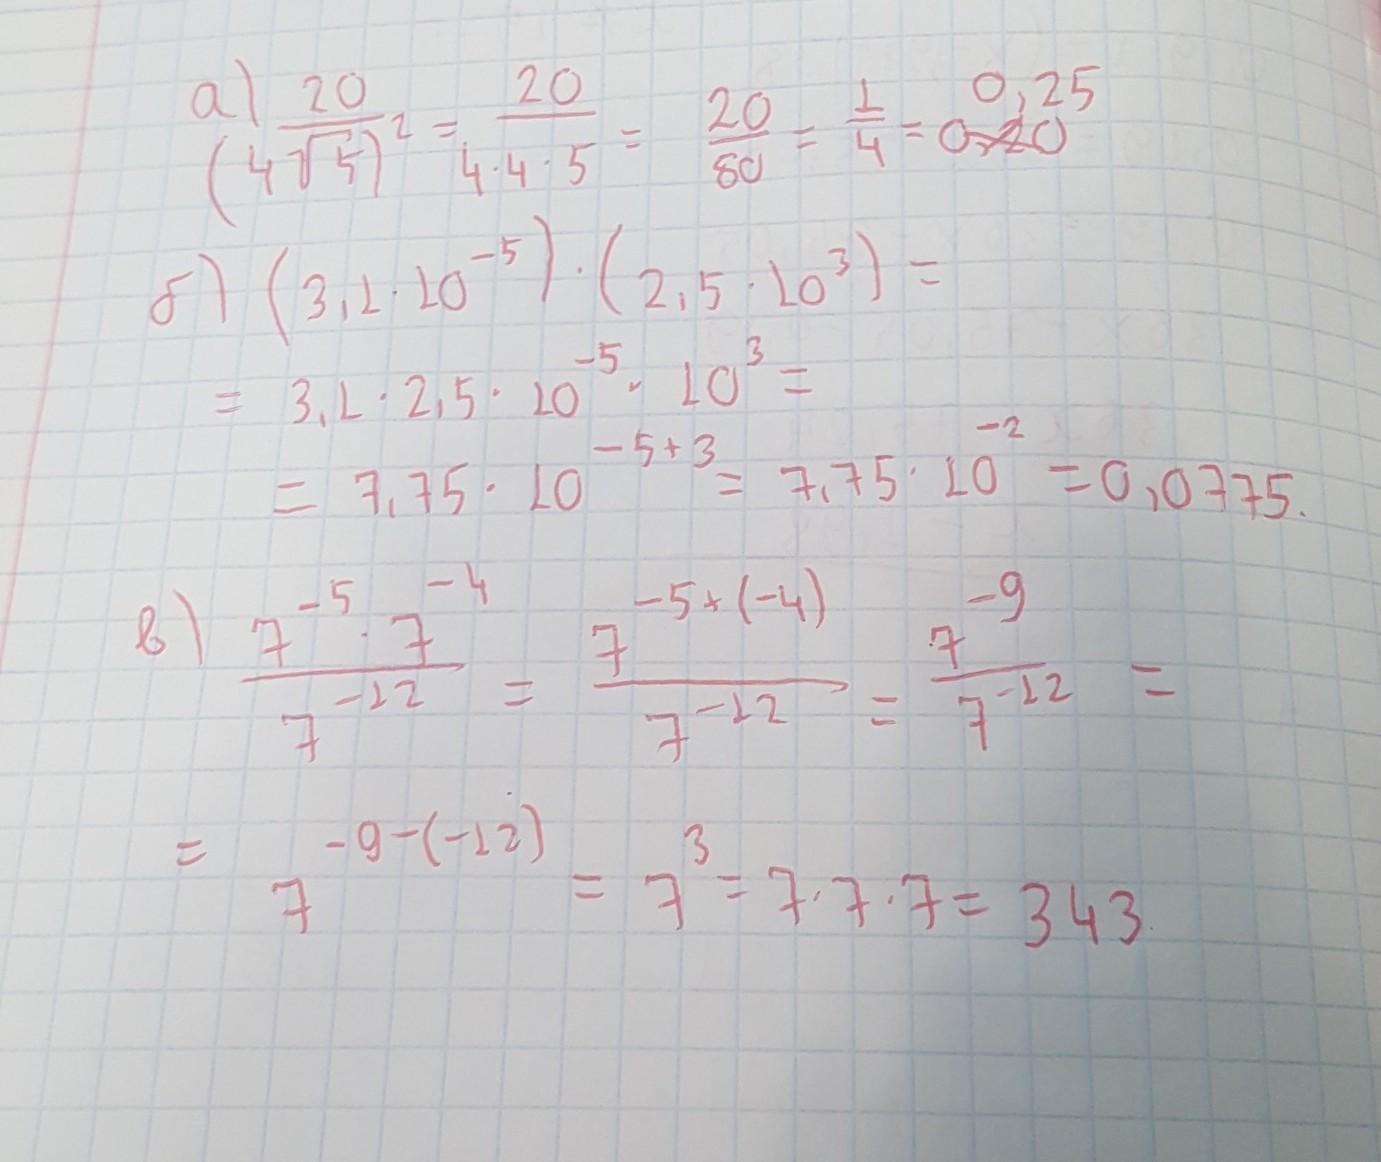 а) 20/(4√5)² = 20/(4·4·5) = 20/80 = 1/4 = 0,25
б) (3,1·10⁻⁵)·(2,5·10³) =
= 3,1·2,5·10⁻⁵·10³ =
= 7,75·10⁻⁵⁺³ = 7,75·10⁻² = 0,0775.
в) (7⁻⁵·7⁻⁴)/7⁻¹² = 7⁻⁵⁺⁽⁻⁴⁾/7⁻¹² = 7⁻⁹/7⁻¹² =
= 7⁻⁹⁻⁽⁻¹²⁾ = 7³ = 7·7·7 = 343.